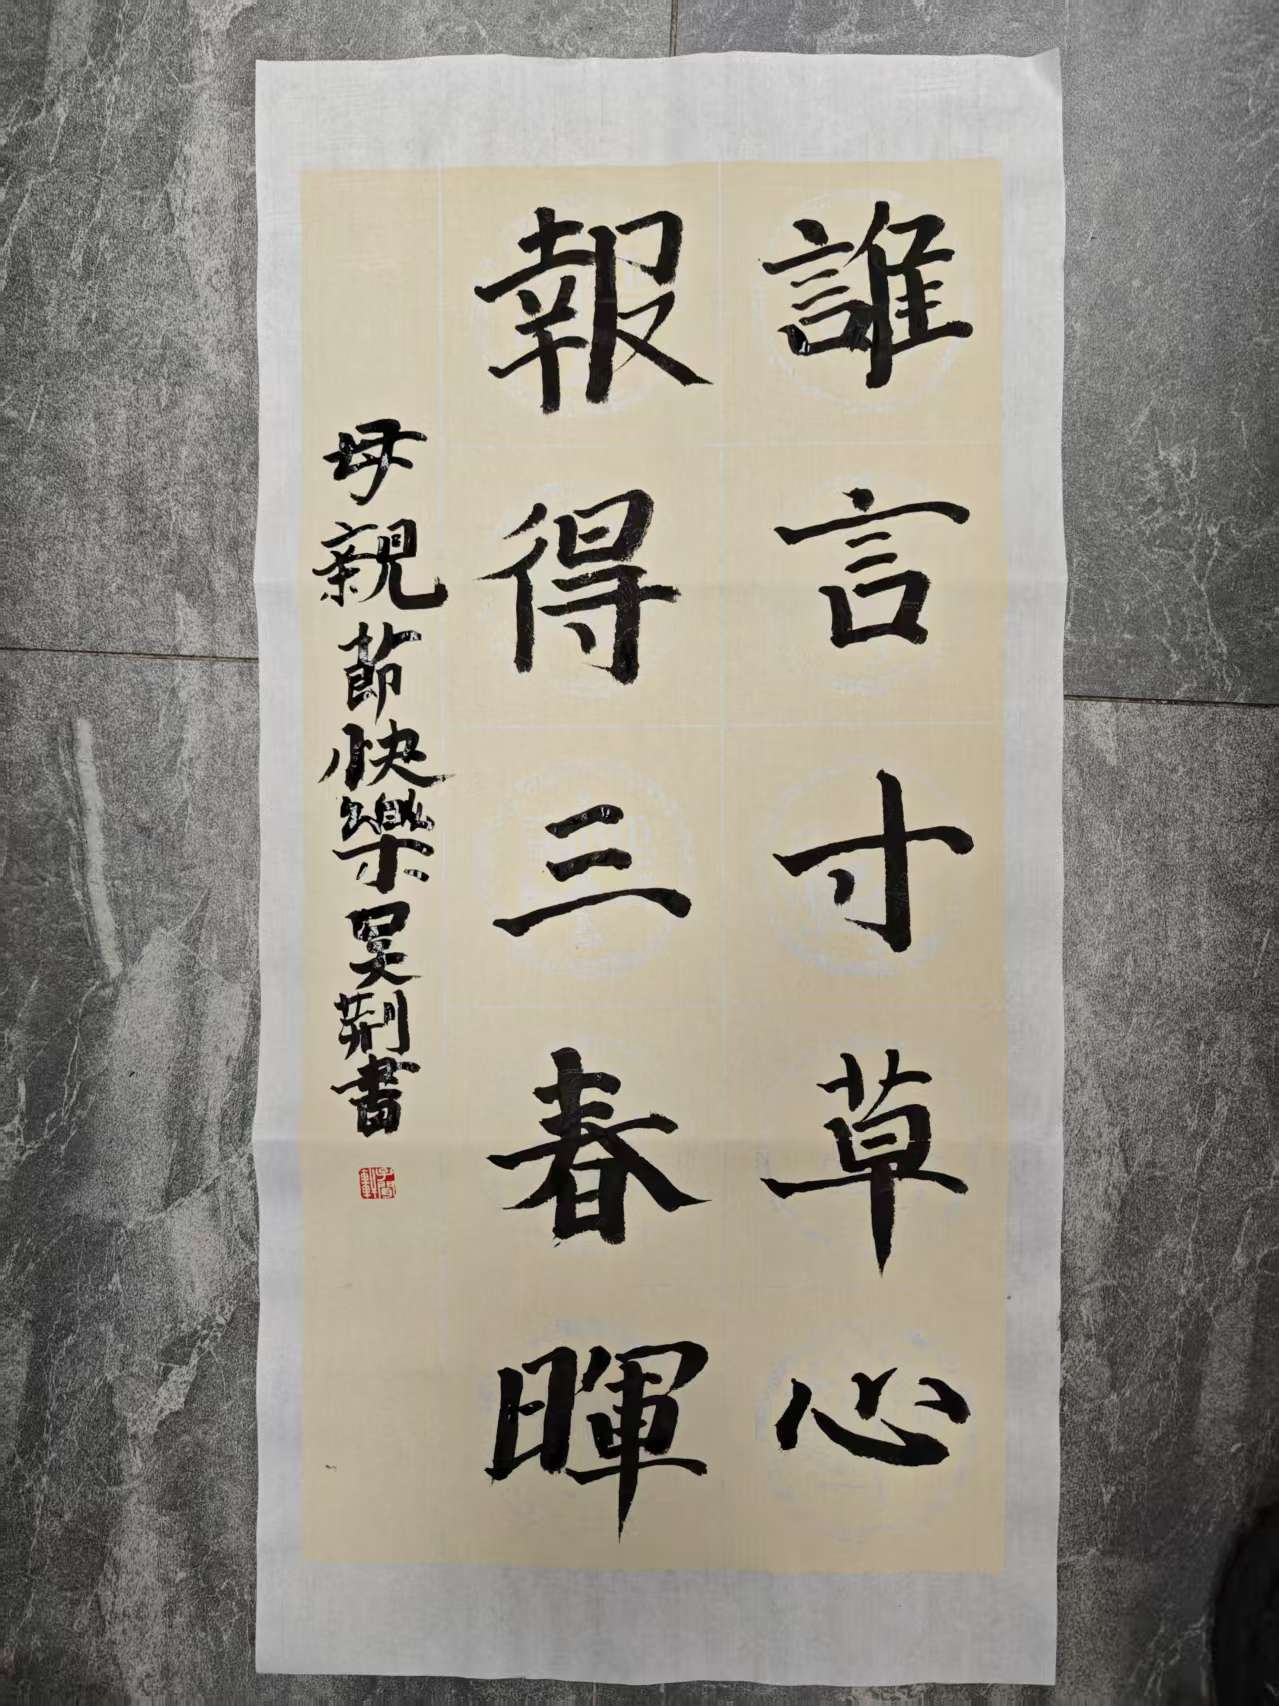 誰言寸草心
報得三春暉
母親節快樂吴荆書